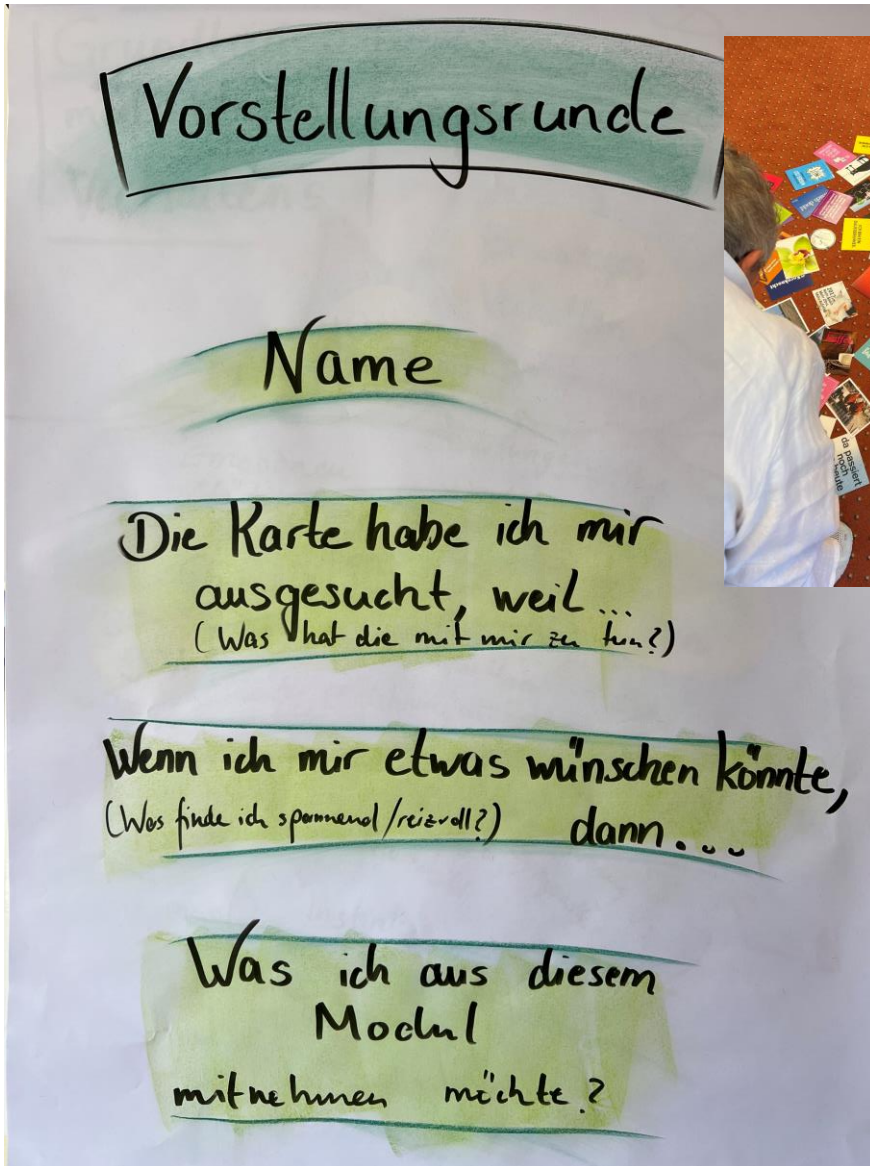 Vorstellungsrunde
Name
Die Karte habe ich mir
ausgesucht, weil...
(Was hat die mit mir zu tun?)
Wenn ich mir etwas wünschen könnte,
(Was finde ich spannend/reizvoll?) dann...
Was ich aus diesem
Modul
mitnehmen möchte?
da passiert
noch
heute